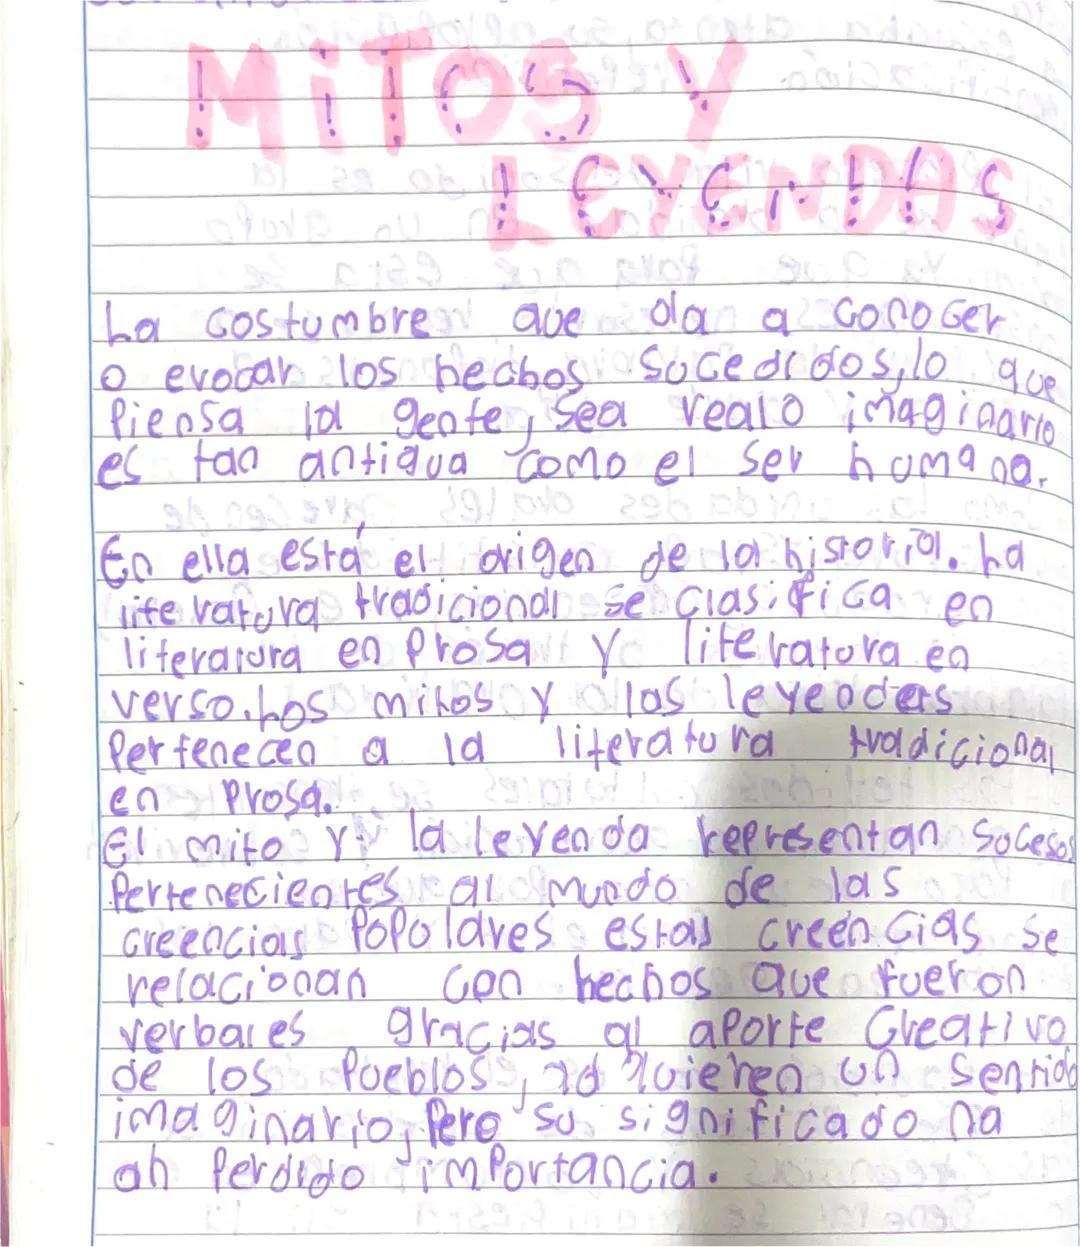 MiTOS Y
LEYENDAS
La costumbre que da a conocer
o evocar los hechos sucedidos, lo que
Piensa la gente, sea real o imaginario
es tan antigua como el ser humano.
En ella está el origen de la historia. La
literatura tradicional se clasifica en
literatura en Prosa y literatura en
verso. Los mitos y las leyendas
Pertenecen a la literatura tradicional
en Prosa.
El mito y la leyenda representan sucesos
Pertenecientes al mundo de las
creencias Populares estas creencias se
relacionan con hechos que fueron
verbales gracias al aporte Creativo
de los Pueblos, adquieren un sentido
imaginario, Pero su significado na
ah Perdido imPortancia.